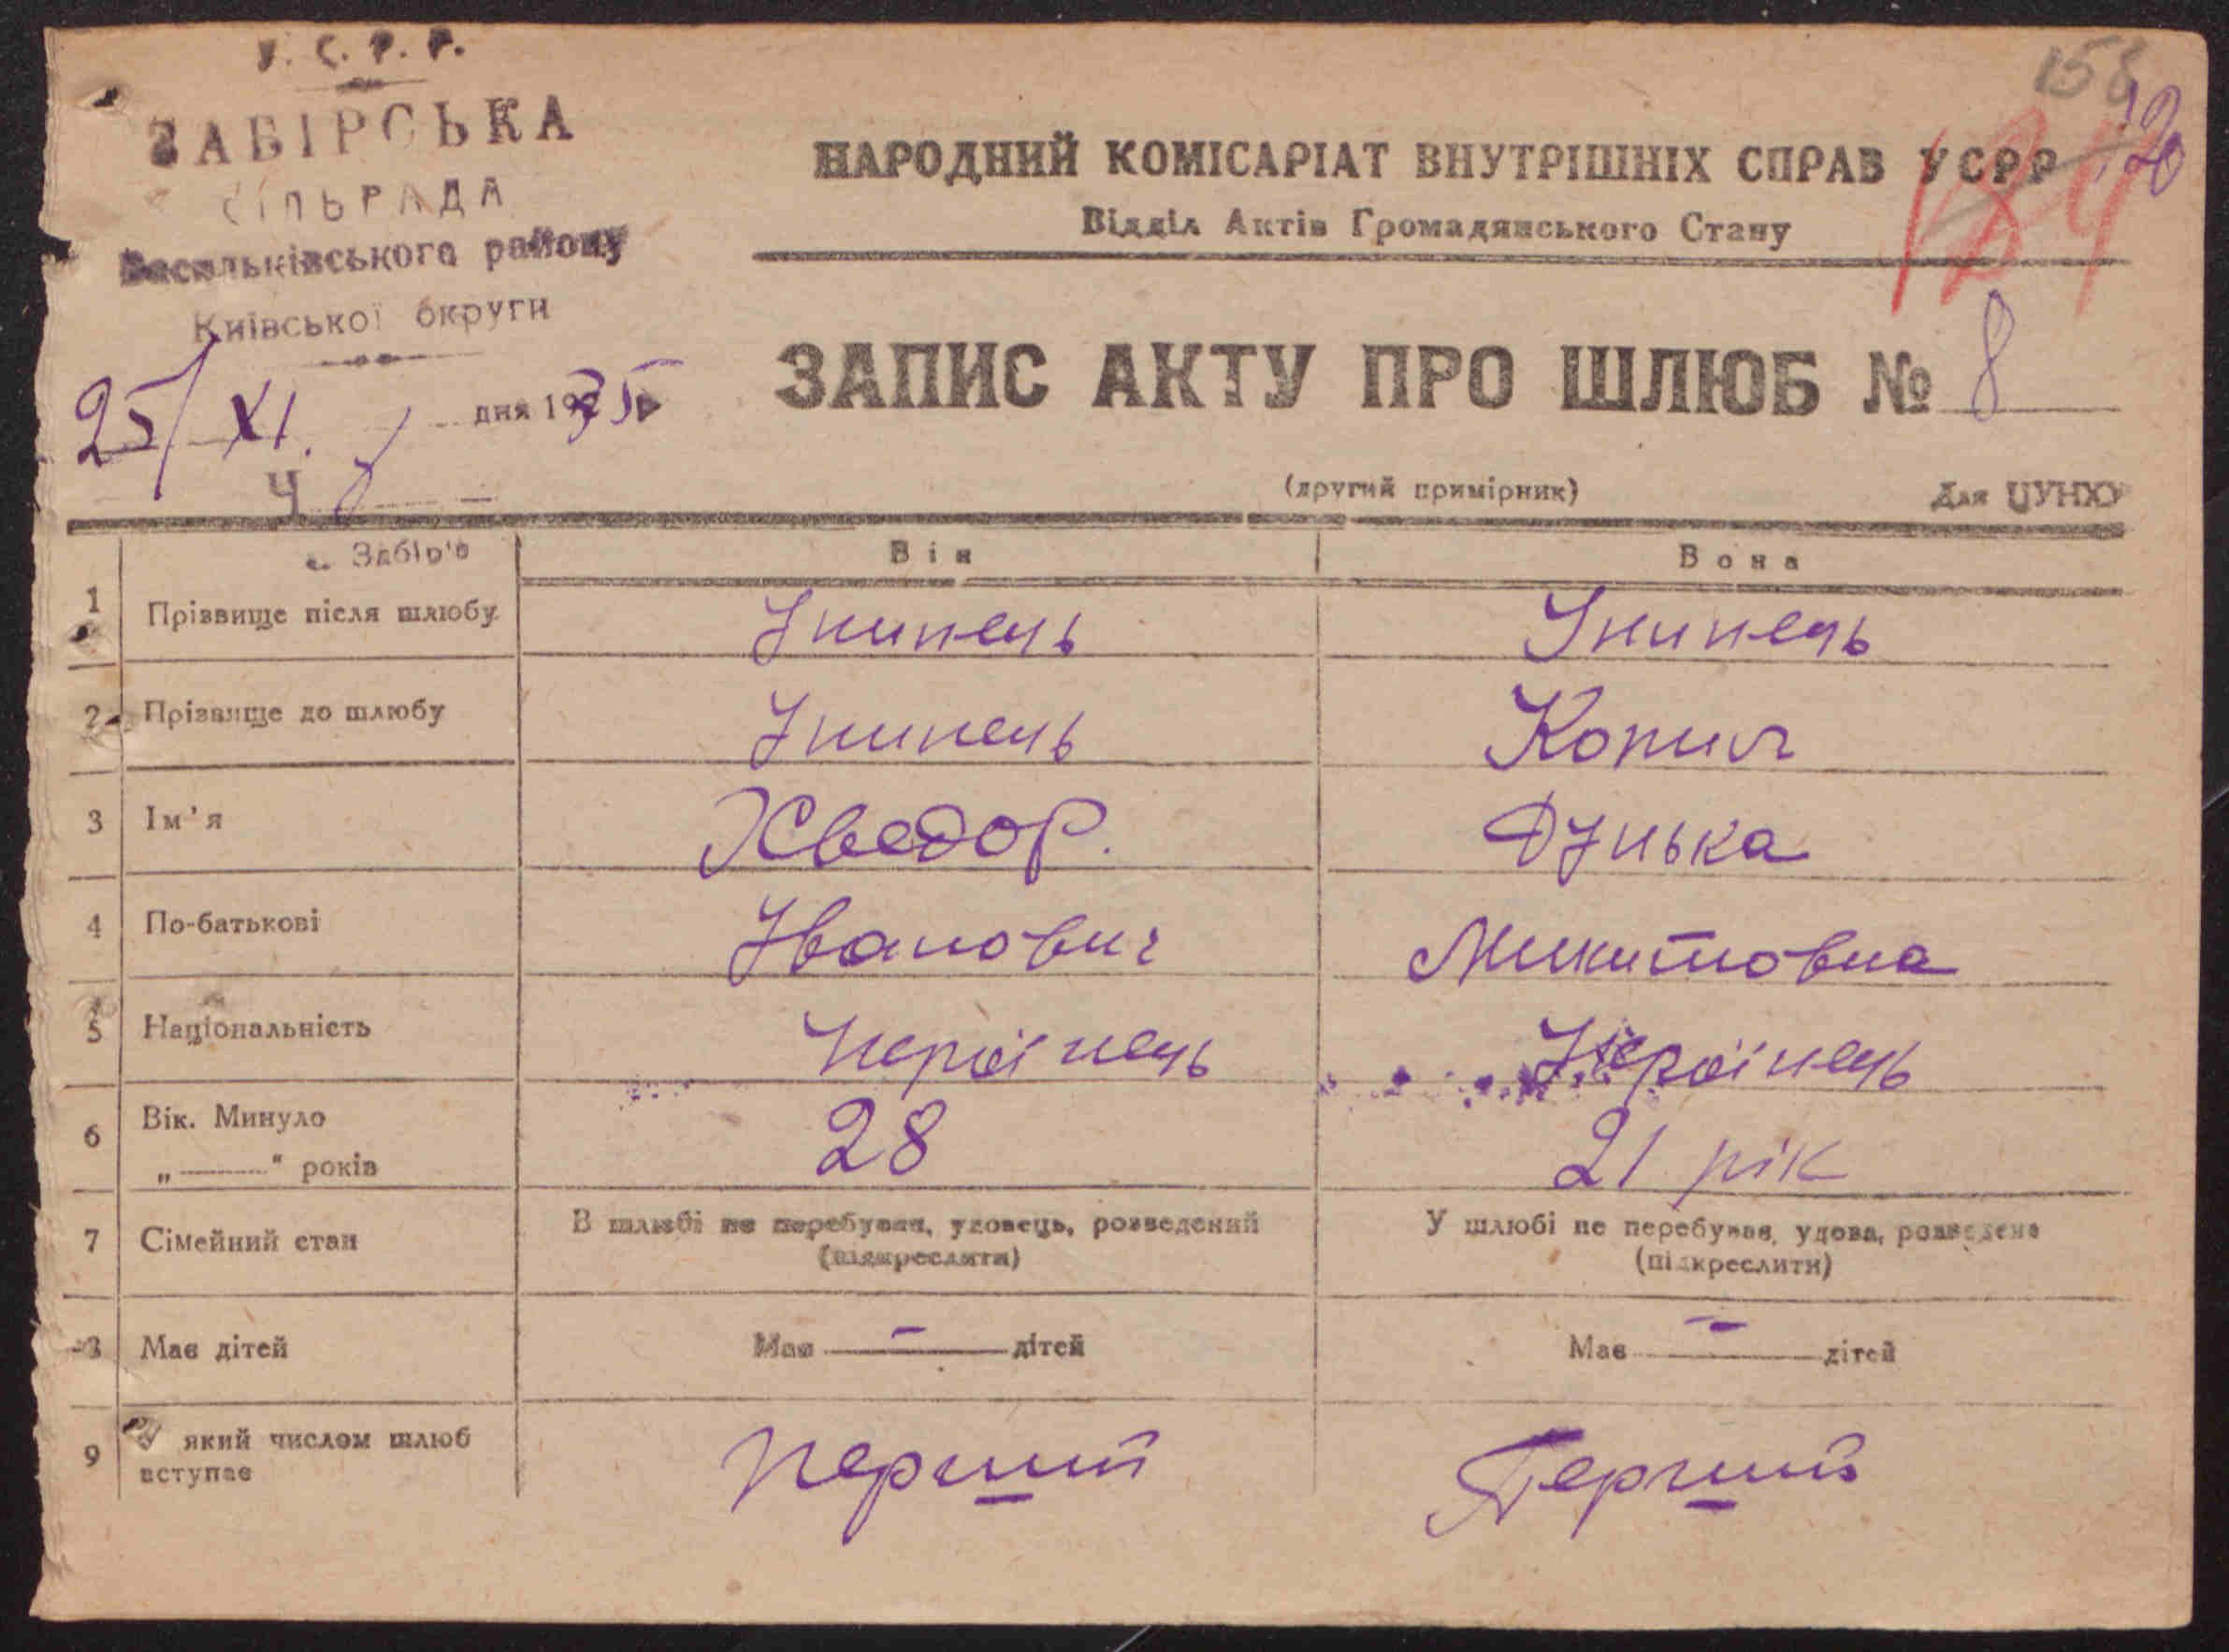 У. С. Р. Р.
ЗАБІРСЬКА
СІЛЬРАДА
Васильківського району
Київської округи
25/XI. дня 1935
Ч 8
158
120
184
НАРОДНИЙ КОМІСАРІАТ ВНУТРІШНІХ СПРАВ УСРР
Відділ Актів Громадянського Стану
ЗАПИС АКТУ ПРО ШЛЮБ № 8
(другий примірник) Для ЦУНХУ
с. Забір'є Він Вона
1 Прізвище після шлюбу
2 Прізвище до шлюбу Копил
3 Ім'я Хведор. Дунька
4 По-батькові Іванович Микитовна
5 Національність Украінець Украінець
6 Вік. Минуло 28 21 рік
„———" років
7 Сімейний стан В шлюбі не перебував, удовець, розведений У шлюбі не перебував, удова, розведена
(підкреслити) (підкреслити)
8 Має дітей Має — дітей Має — дітей
9 У який числом шлюб Перший Перший
вступає